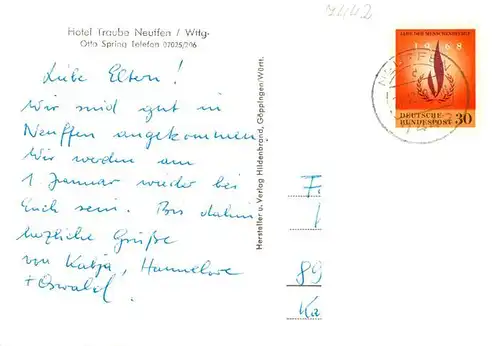 Hotel Traube Neuffen / Wttg.
Otto Spring Telefon 07025/206
7442
JAHR DER MENSCHENRECHTE
1968
DEUTSCHE
BUNDESPOST 30
NEUFFEN
Liebe Eltern!
Wir sind gut in
Neuffen angekommen.
Wir werden am
1 Januar wieder bei
Euch sein. Bis dahin
herzliche Grüße
von Katja, Hannelore
+ Oswald.
Hersteller u. Verlag Hildenbrand, Göppingen/Württ.
F.
89
Ka